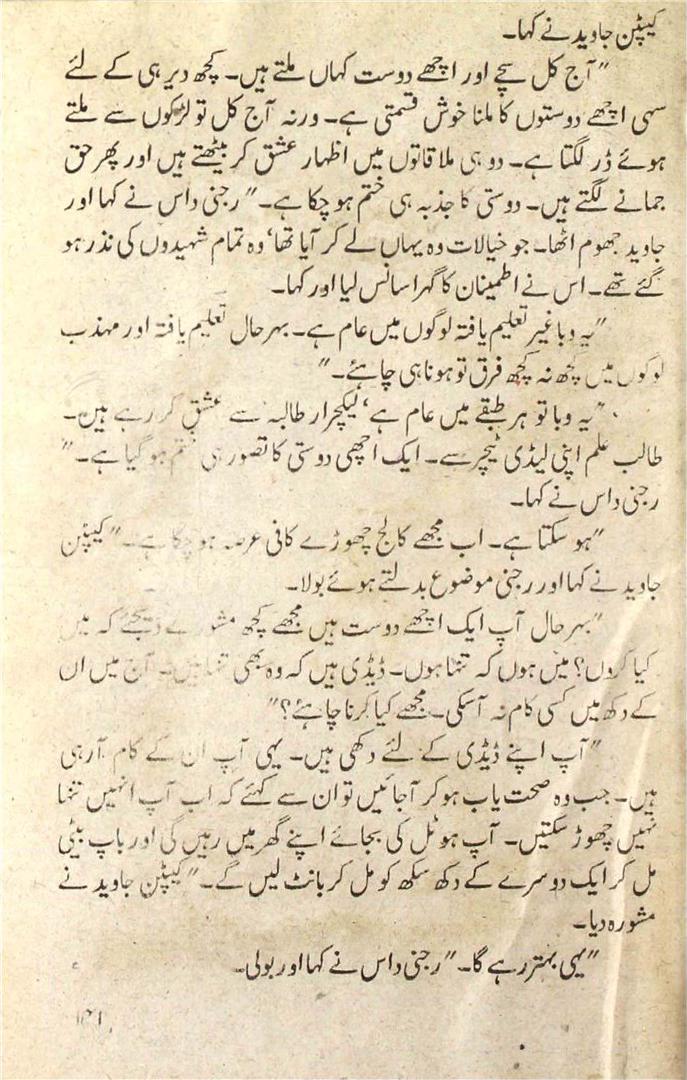 کیپٹن جاوید نے کہا۔
"آج کل سچے اور اچھے دوست کہاں ملتے ہیں۔ کچھ دیر ہی کے لئے
سہی اچھے دوستوں کا ملنا خوش قسمتی ہے۔ ورنہ آج کل تو لڑکوں سے ملتے
ہوئے ڈر لگتا ہے۔ دو ہی ملاقاتوں میں اظہار عشق کر بیٹھتے ہیں اور پھر حق
جمانے لگتے ہیں۔ دوستی کا جذبہ ہی ختم ہو چکا ہے۔" رجنی داس نے کہا اور
جاوید جھوم اٹھا۔ جو خیالات وہ یہاں لے کر آیا تھا، وہ تمام شہیدوں کی نذر ہو
گئے تھے۔ اس نے اطمینان کا گہرا سانس لیا اور کہا۔
"یہ وبا غیر تعلیم یافتہ لوگوں میں عام ہے۔ بہرحال تعلیم یافتہ اور مہذب
لوگوں میں کچھ نہ کچھ فرق تو ہونا ہی چاہئے۔"
"یہ وبا تو ہر طبقے میں عام ہے، لیکچرار طالبہ سے عشق کر رہے ہیں۔
طالب علم اپنی لیڈی ٹیچر سے۔ ایک اچھی دوستی کا تصور ہی ختم ہو گیا ہے۔"
رجنی داس نے کہا۔
"ہو سکتا ہے۔ اب مجھے کالج چھوڑے کافی عرصہ ہو چکا ہے۔" کیپٹن
جاوید نے کہا اور رجنی موضوع بدلتے ہوئے بولا۔
"بہرحال آپ ایک اچھے دوست ہیں مجھے کچھ مشورے دیجئے کہ میں
کیا کروں؟ میں ہوں کہ تنہا ہوں۔ ڈیڈی ہیں کہ وہ بھی تنہا ہیں۔ آج میں ان
کے دکھ میں کسی کام نہ آ سکی۔ مجھے کیا کرنا چاہئے؟"
"آپ اپنے ڈیڈی کے لئے دکھی ہیں۔ یہی آپ ان کے کام آ رہی
ہیں۔ جب وہ صحت یاب ہو کر آ جائیں تو ان سے کہئے کہ اب آپ انہیں تنہا
نہیں چھوڑ سکتیں۔ آپ ہوٹل کی بجائے اپنے گھر میں رہیں گی اور باپ بیٹی
مل کر ایک دوسرے کے دکھ سکھ کو مل کر بانٹ لیں گے۔" کیپٹن جاوید نے
مشورہ دیا۔
"یہی بہتر رہے گا۔" رجنی داس نے کہا اور بولی۔